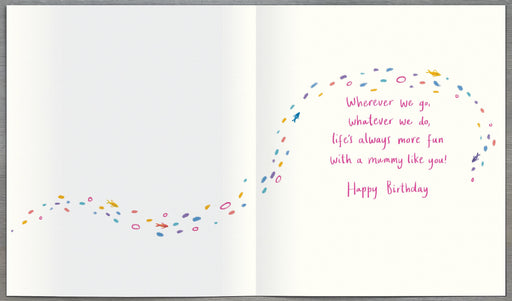 Wherever we go,
whatever we do,
life's always more fun
with a mummy like you!
Happy Birthday